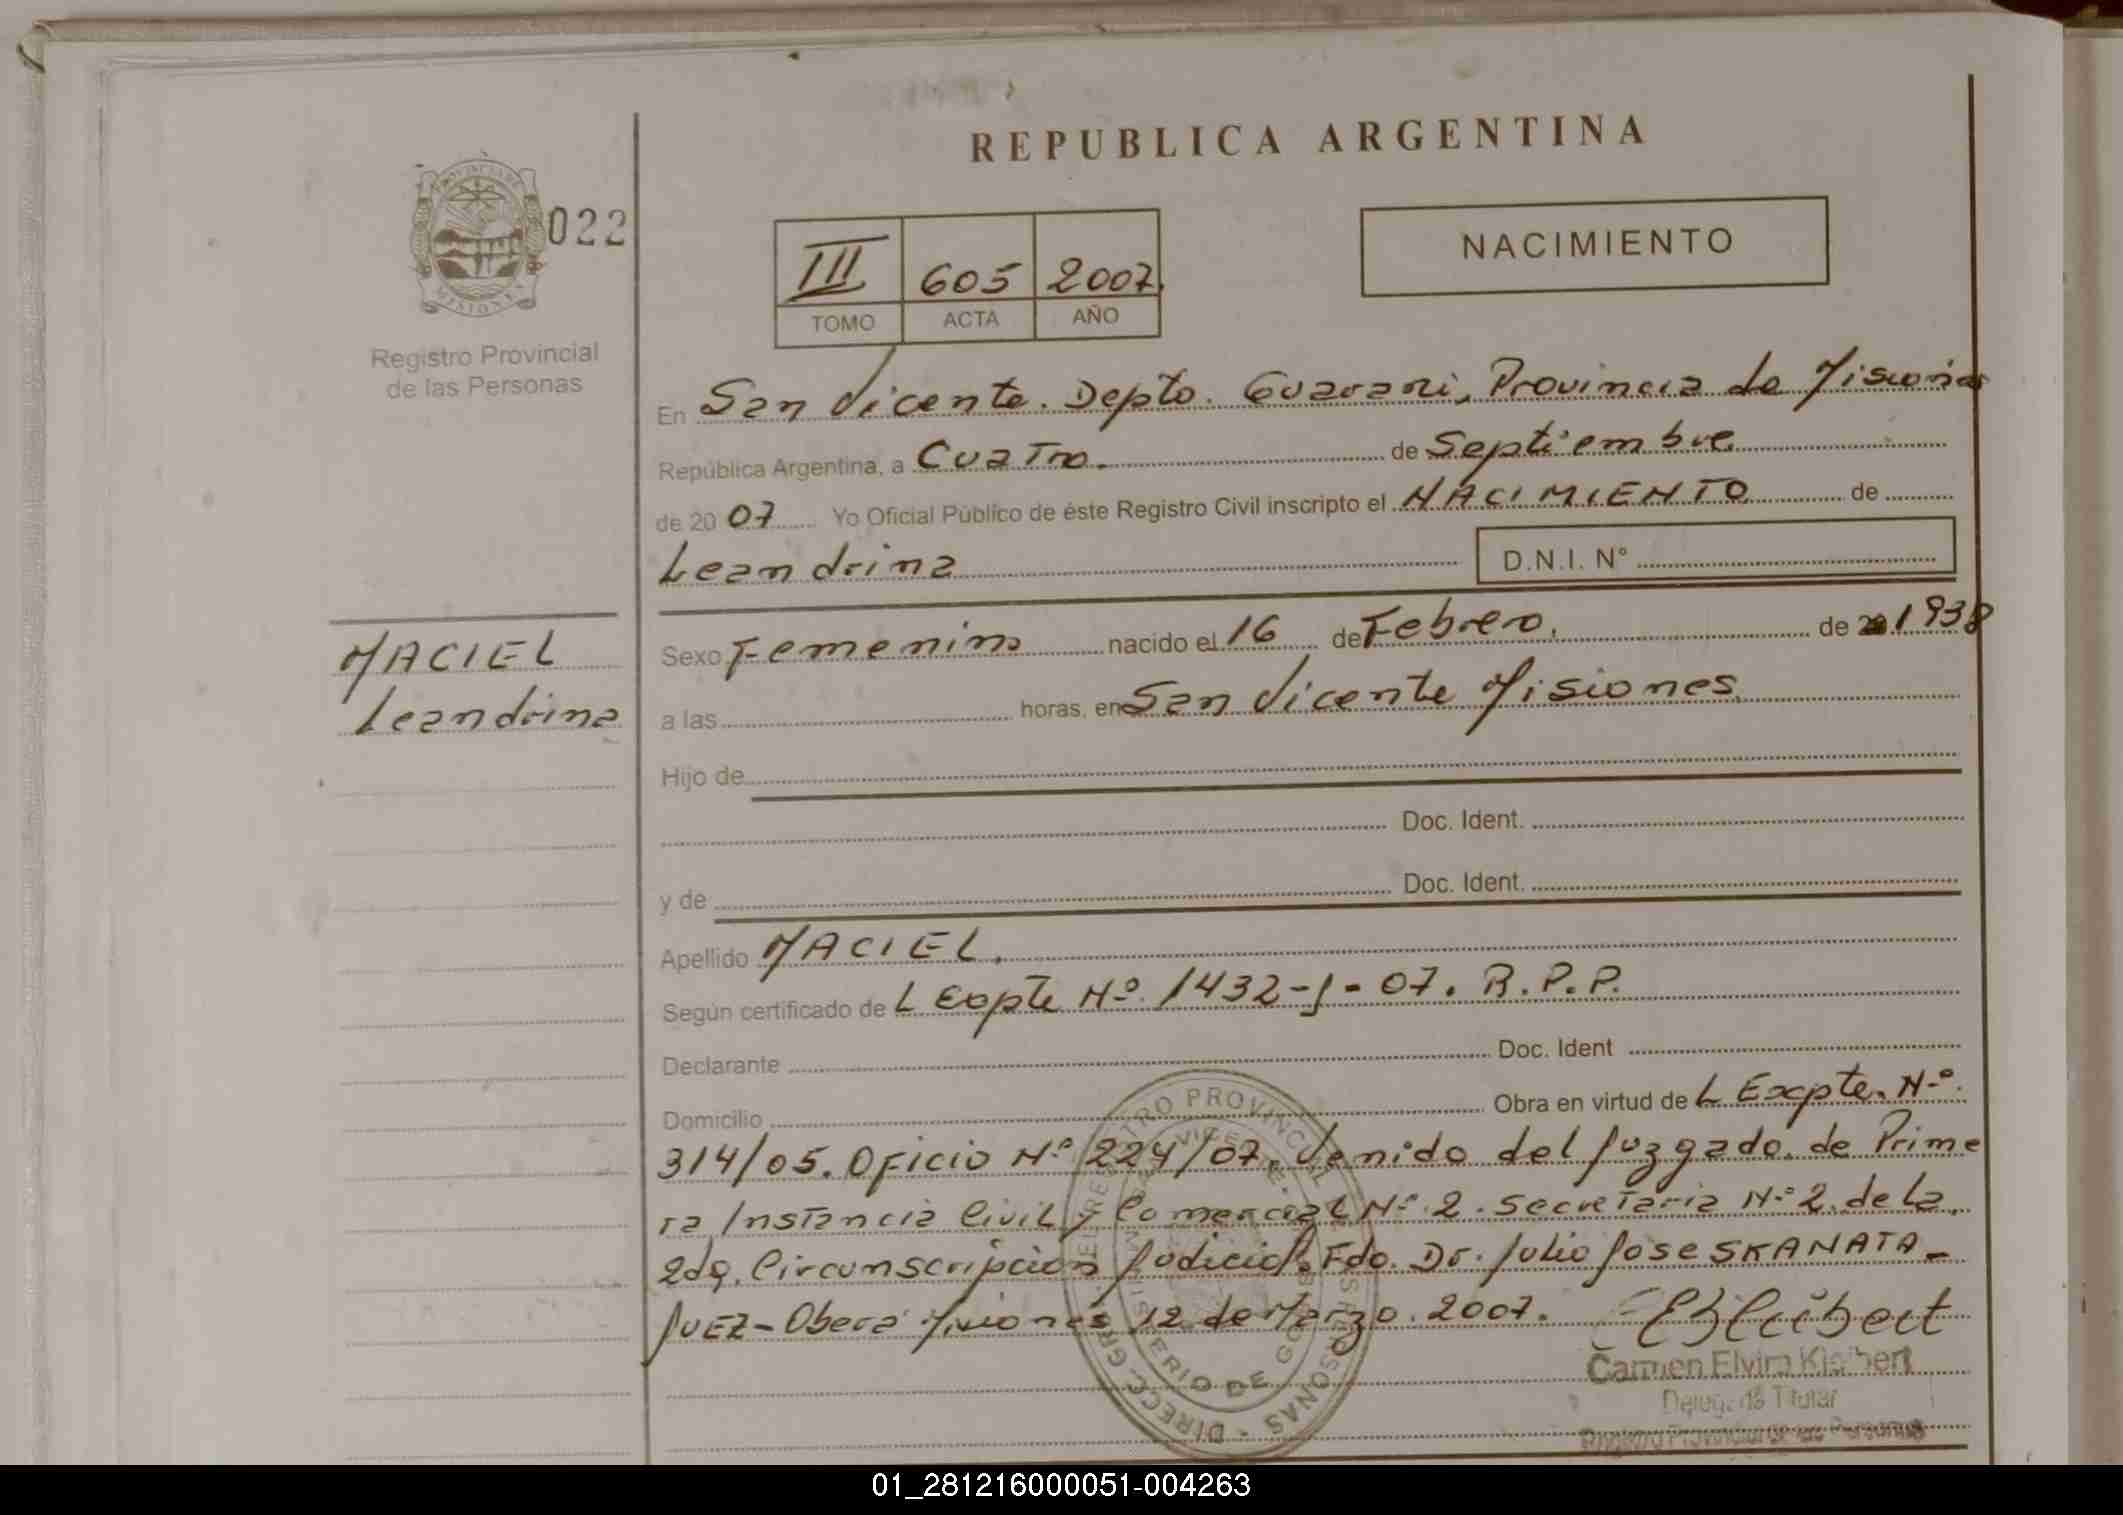 REPUBLICA ARGENTINA
PROVINCIA DE
MISIONES
022
Registro Provincial
de las Personas
III 605 2007
TOMO ACTA AÑO
NACIMIENTO
En San Vicente. Depto. Guarani, Provincia de Misiones
República Argentina, a Cuatro. de Septiembre
de 20 07 Yo Oficial Público de éste Registro Civil inscripto el NACIMIENTO de
Leandrina D.N.I. N°
MACIEL
Leandrina
Sexo Femenino nacido el 16 de Febrero. de 1938
a las horas, en San Vicente Misiones
Hijo de
Doc. Ident.
y de Doc. Ident.
Apellido MACIEL.
Según certificado de L Expte Nº 1432-J-07. R.P.P.
Declarante Doc. Ident
Domicilio Obra en virtud de L Expte. Nº.
314/05. Oficio Nº 224/07. Venido del Juzgado de Prime
ra Instancia Civil y Comercial Nº 2. Secretaria Nº 2. de La
2da. Circunscripcion Judicial. Fdo. Dr. Julio Jose SKANATA-
JUEZ - Obera Misiones 12 de Marzo. 2007.
Carmen Elvira Kleibert
Titular
Registro Provincial de las Personas
01_281216000051-004263